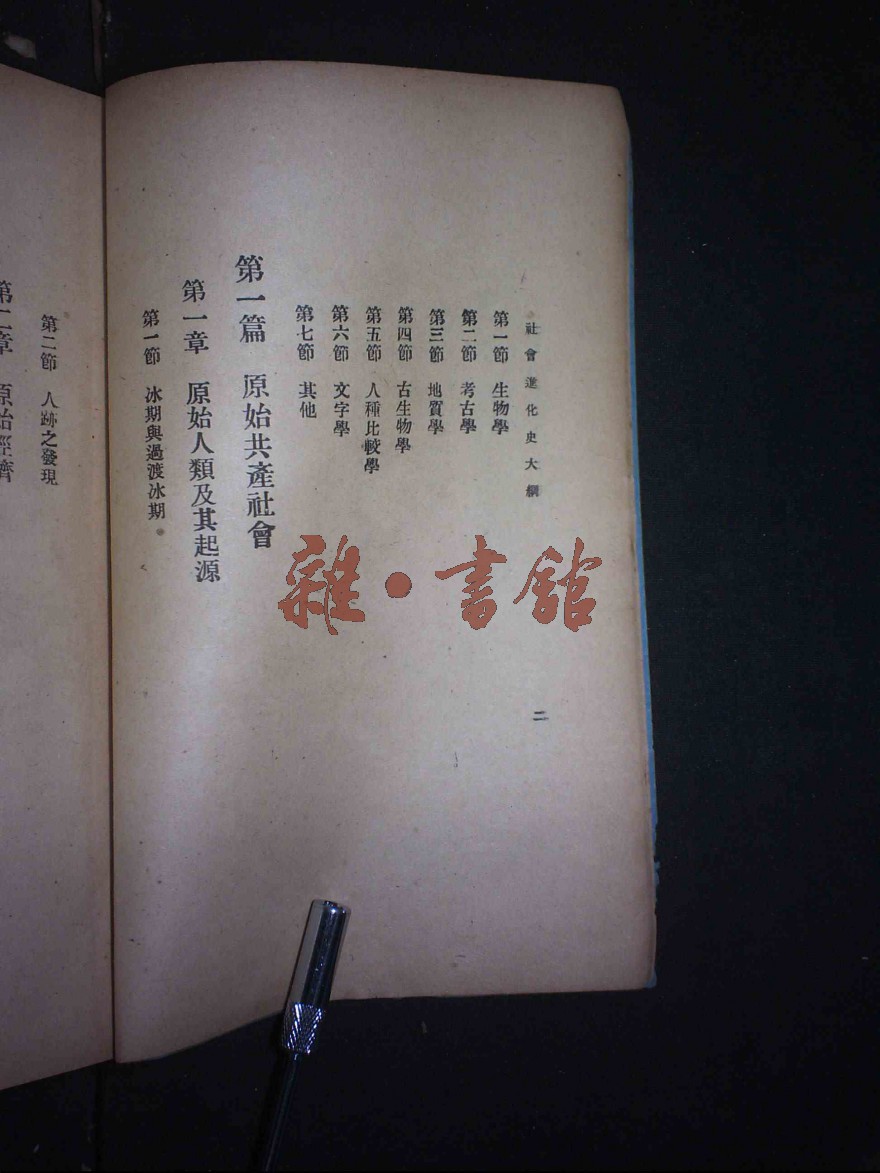 社會進化史大綱
二
第一節 生物學
第二節 考古學
第三節 地質學
第四節 古生物學
第五節 人種比較學
第六節 文字學
第七節 其他
第一篇 原始共產社會
第一章 原始人類及其起源
第一節 冰期與過渡冰期
第二節 人跡之發現
第二章 原始經濟
雜·書館